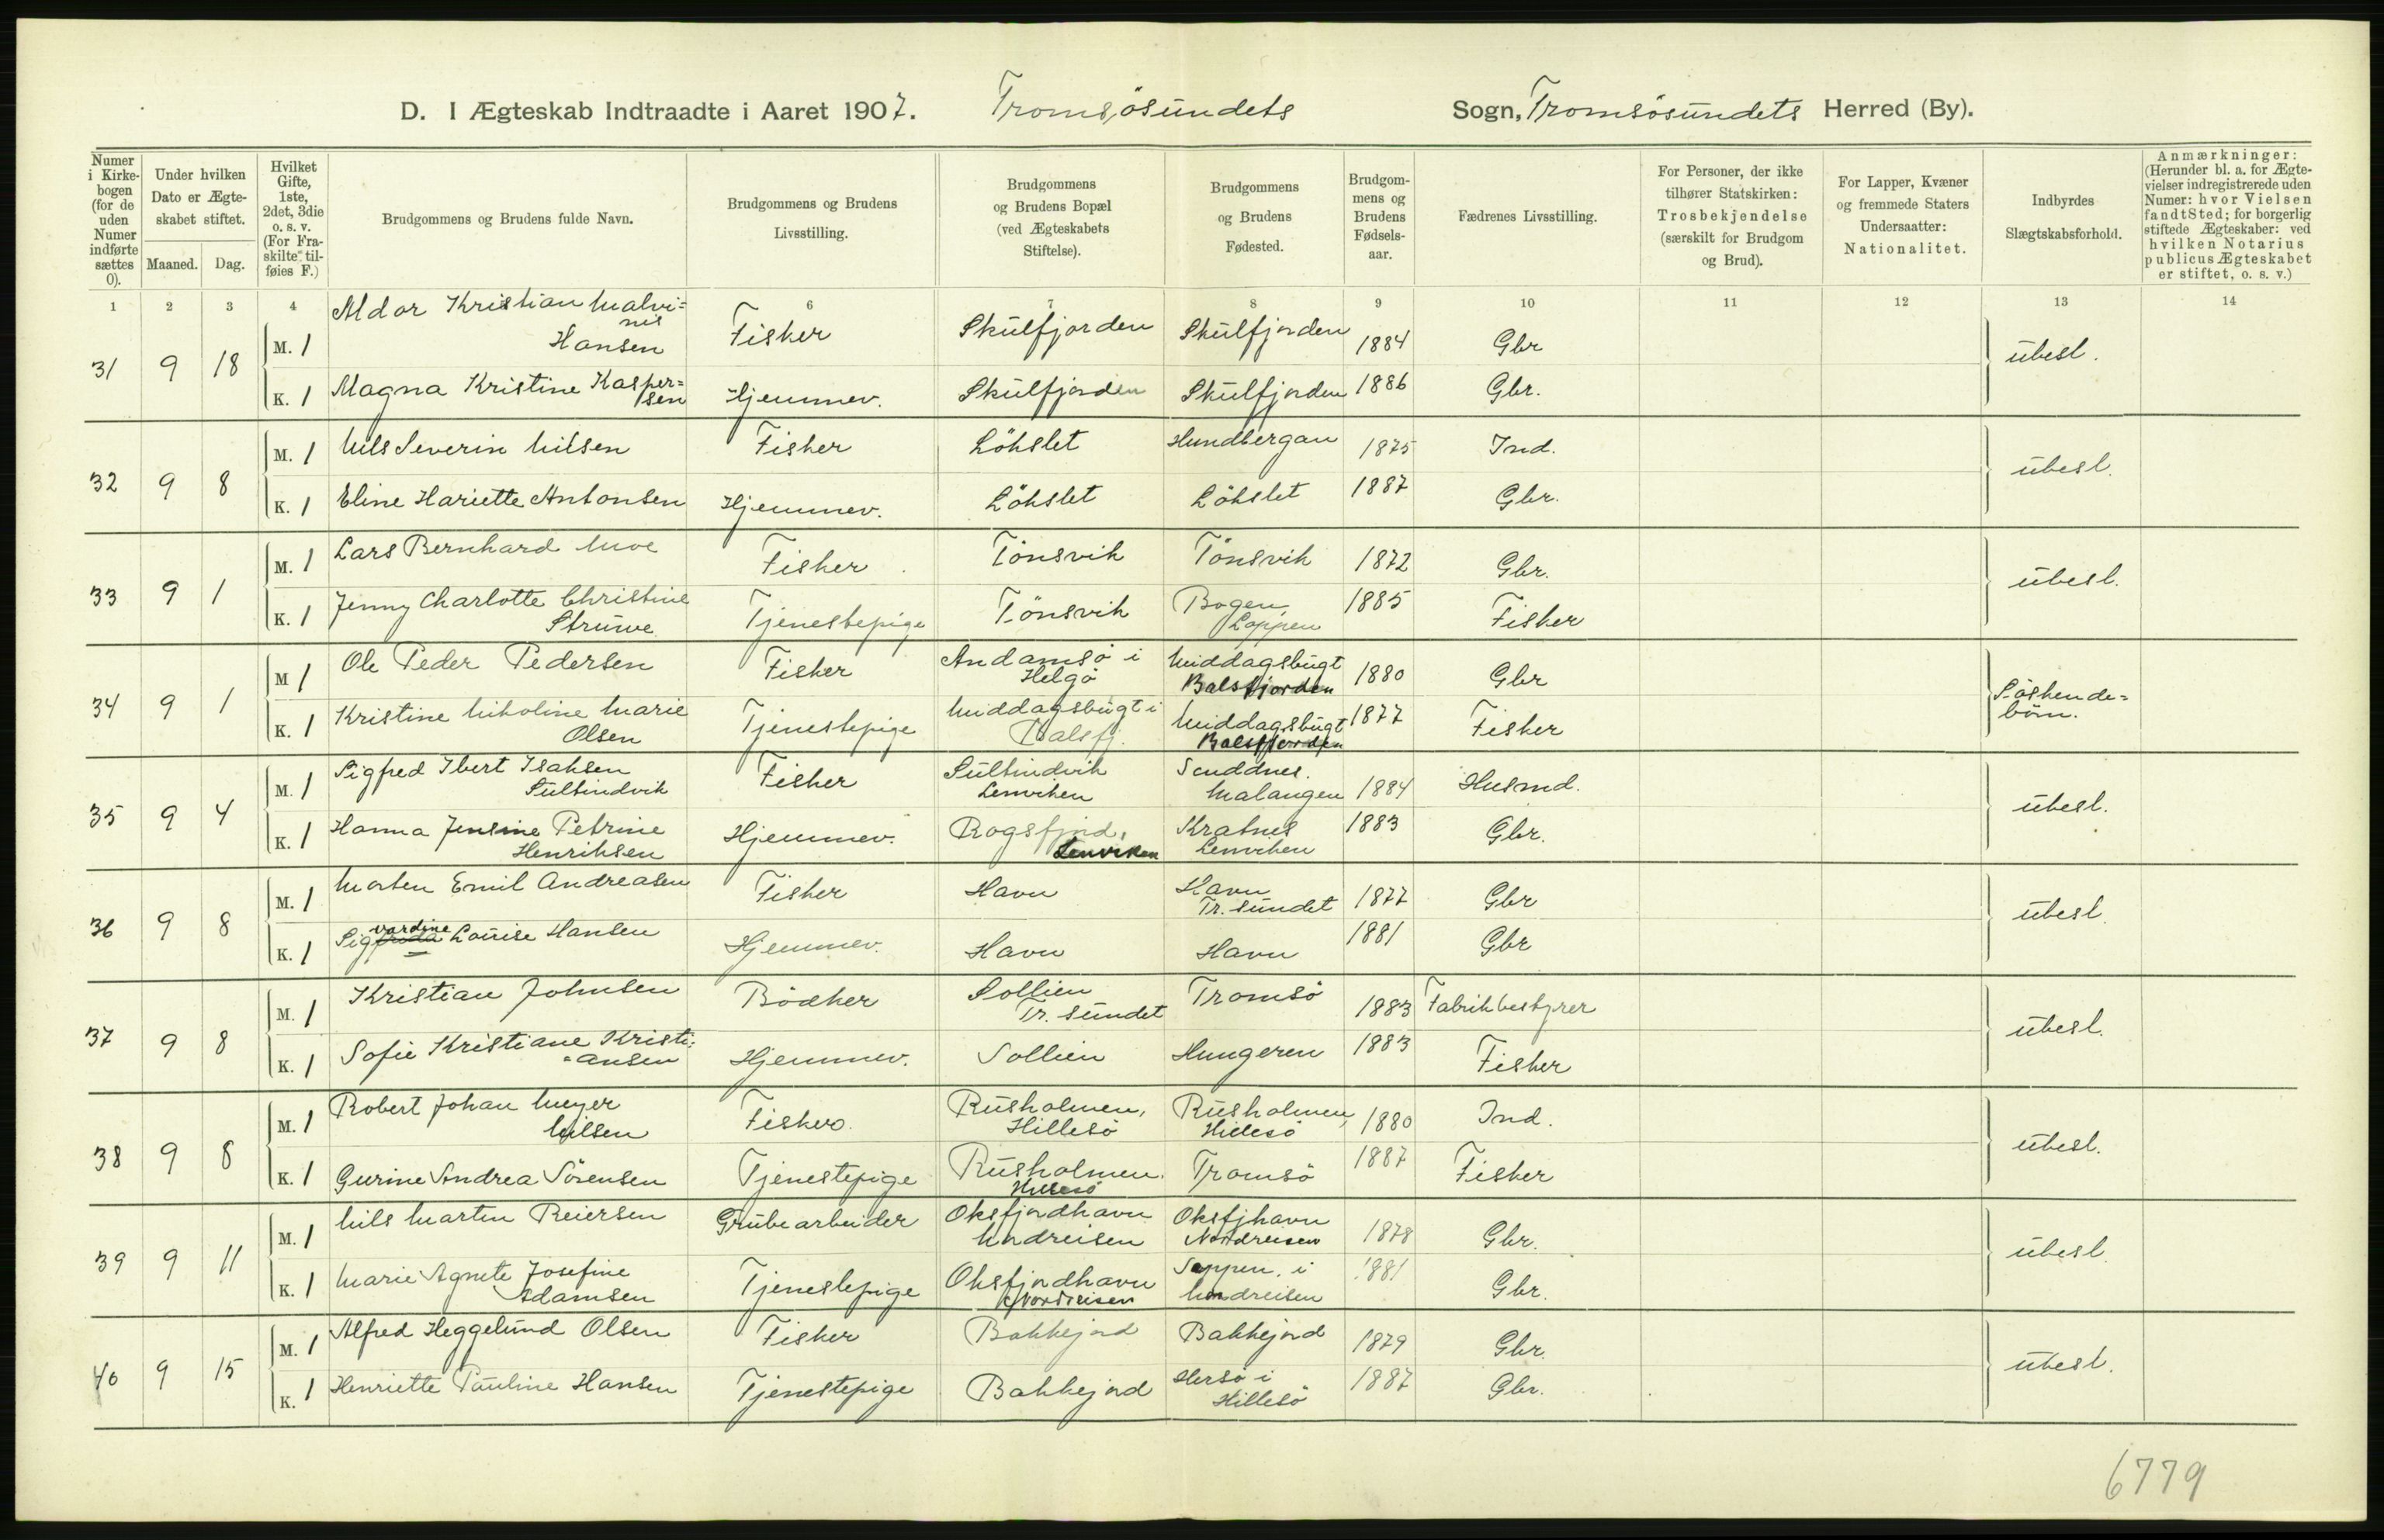 D. I Ægteskab Indtraadte i Aaret 1907. Tromsösundets Sogn, Tromsösundets Herred (By).
Numer i Kirkebogen (for de uden Numer indførte sættes 0). Under hvilken Dato er Ægteskabet stiftet. Maaned. Dag. Hvilket Gifte, 1ste, 2det, 3die o. s. v. (For Fraskilte tilføies F.) Brudgommens og Brudens fulde Navn. Brudgommens og Brudens Livsstilling. Brudgommens og Brudens Bopæl (ved Ægteskabets Stiftelse). Brudgommens og Brudens Fødested. Brudgommens og Brudens Fødselsaar. Fædrenes Livsstilling. For Personer, der ikke tilhører Statskirken: Trosbekjendelse (særskilt for Brudgom og Brud). For Lapper, Kvæner og fremmede Staters Undersaatter: Nationalitet. Indbyrdes Slægtskabsforhold. Anmærkninger: (Herunder bl. a. for Ægtevielser indregistrerede uden Numer: hvor Vielsen fandt Sted; for borgerlig stiftede Ægteskaber: ved hvilken Notarius publicus Ægteskabet er stiftet, o. s. v.)
1 2 3 4 6 7 8 9 10 11 12 13 14
31 9 18 M. 1 Aldor Kristian Malvinis Hansen Fisker Skulfjorden Skulfjorden 1884 Gbr ubesl.
K. 1 Magna Kristine Kaspersen Hjemmev. Skulfjorden Skulfjorden 1886 Gbr.
32 9 8 M. 1 Nils Severin Nilsen Fisker Lökslet Hundbergan 1875 Ind. ubesl.
K. 1 Eline Hariette Antonsen Hjemmev. Lökslet Lökslet 1887 Gbr.
33 9 1 M. 1 Lars Bernhard Moe Fisker Tönsvik Tönsvik 1872 Gbr. ubesl.
K. 1 Jenny Charlotte Christine Struwe Tjenestepige Tönsvik Bogen, Loppen 1885 Fisker
34 9 1 M 1 Ole Peder Pedersen Fisker Andamsö i Helgö Middagsbugt Balsfjorden 1880 Gbr Söskendebörn.
K. 1 Kristine Nikoline Marie Olsen Tjenestepige Middagsbugt i Balsfj. Middagsbugt Balsfjorden 1877 Fisker
35 9 4 M. 1 Sigfred Ibert Isaksen Sultindvik Fisker Sultindvik Lenviken Senddnes. Malangen 1884 Husmd. ubesl.
K. 1 Hanna Jensine Petrine Henriksen Hjemmev. Rogsfjord, Lenviken Kratnes Lenviken 1883 Gbr.
36 9 8 M. 1 Morten Emil Andreasen Fisker Havn Havn Tr. sundet 1877 Gbr ubesl.
K. 1 Sigvardine Louise Hansen Hjemmev. Havn Havn 1881 Gbr
37 9 8 M. 1 Kristian Johnsen Bödker Sollien Tr. sundet Tromsö 1883 Fabrikbestyrer ubesl.
K. 1 Sofie Kristiane Kristiansen Hjemmev. Sollien Hungeren 1883 Fisker
38 9 8 M. 1 Robert Johan Meyer Nilsen Fisker Rusholmen, Hillesö Rusholmen, Hillesö 1880 Ind. ubesl.
K. 1 Gurine Andrea Sörensen Tjenestepige Rusholmen. Hillesö Tromsö 1887 Fisker
39 9 11 M. 1 Nils Martin Reiersen Grubearbeider Oksfjordhavn Nordreisen Oksfjhavn Nordreisen 1878 Gbr. ubesl.
K. 1 Marie Agnete Josefine Adamsen Tjenestepige Oksfjordhavn Nordreisen Sappen. i Nordreisen 1881 Gbr.
40 9 15 M. 1 Alfred Heggelund Olsen Fisker Bakkejord Bakkejord 1879 Gbr. ubesl.
K. 1 Henriette Pauline Hansen Tjenestepige Bakkejord Hersö i Hillesö 1887 Gbr.
6779